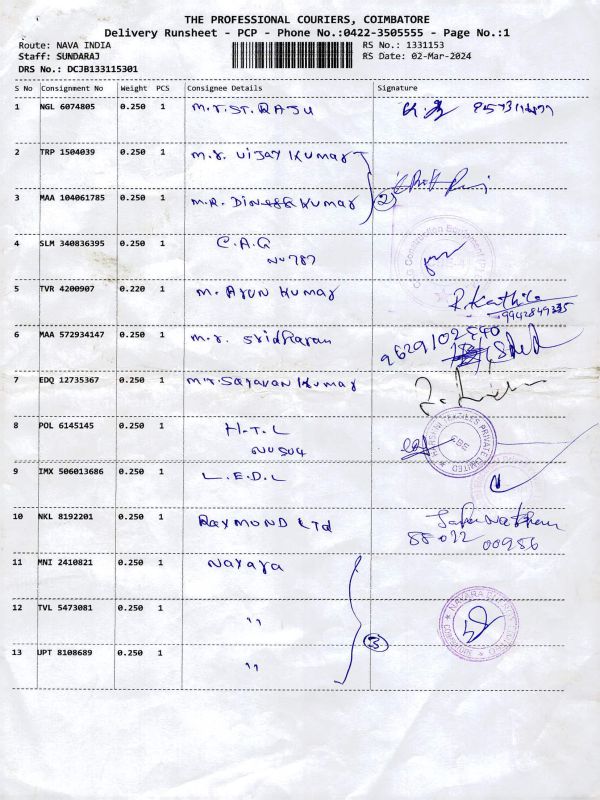 THE PROFESSIONAL COURIERS, COIMBATORE
Delivery Runsheet - PCP - Phone No.:0422-3505555 - Page No.:1
Route: NAVA INDIA RS No.: 1331153
Staff: SUNDARAJ RS Date: 02-Mar-2024
DRS No.: DCJB133115301
S No Consignment No Weight PCS Consignee Details Signature
1 NGL 6074805 0.250 1 M.r.ST. RAJU
2 TRP 1504039 0.250 1 M.r. Vijay Kumar
3 MAA 104061785 0.250 1 M.R. Dinesh Kumar 2
4 SLM 340836395 0.250 1 C.A.G
NU 787
5 TVR 4200907 0.220 1 M. Arun Kumar R. Karthik
9942849235
6 MAA 572934147 0.250 1 M.r. Sridharan 9629102540
7 EDQ 12735367 0.250 1 Mr. Saravan Kumar
8 POL 6145145 0.250 1 H.T.L
NU 504
TEXTILES PRIVATE LIMITED
CBE
9 IMX 506013686 0.250 1 L.E.D.L
10 NKL 8192201 0.250 1 RAYMOND Ltd
88022 00956
11 MNI 2410821 0.250 1 Nayara
12 TVL 5473081 0.250 1 ''
NAYARA
13 UPT 8108689 0.250 1 '' 3